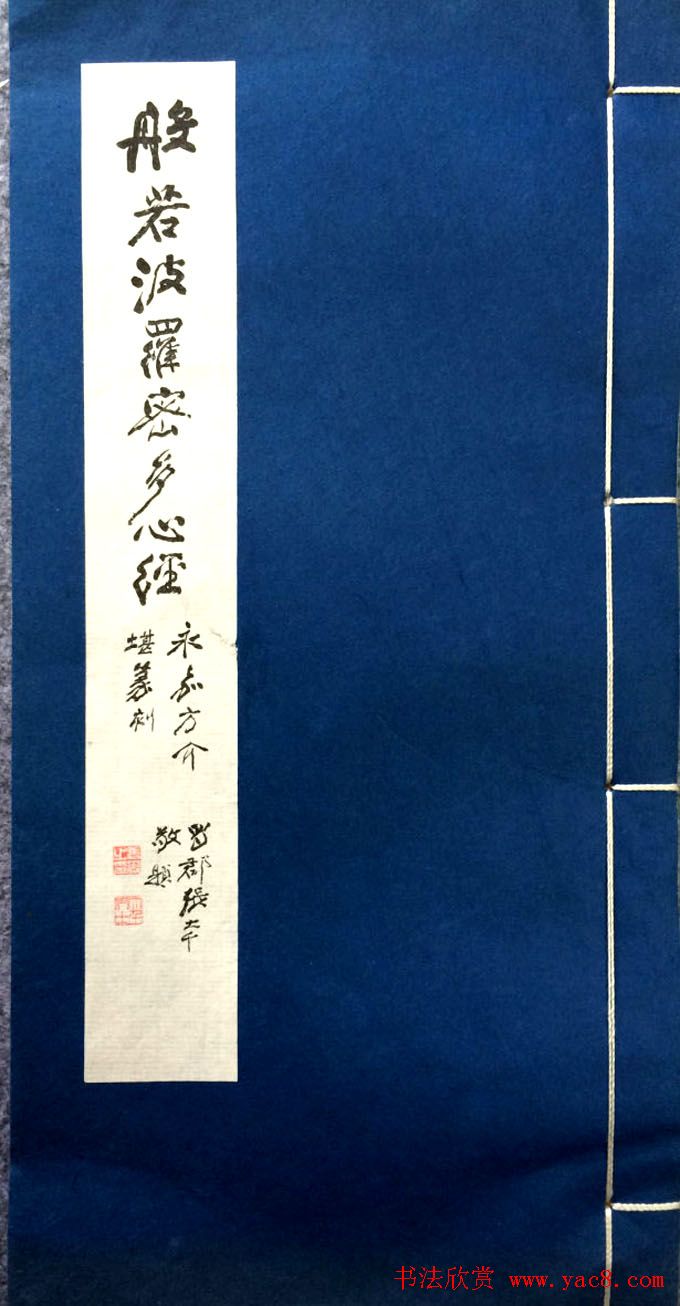 般若波羅密多心經
永嘉方介
堪篆刻
蜀郡張大千
敬題
书法欣赏 www.yac8.com